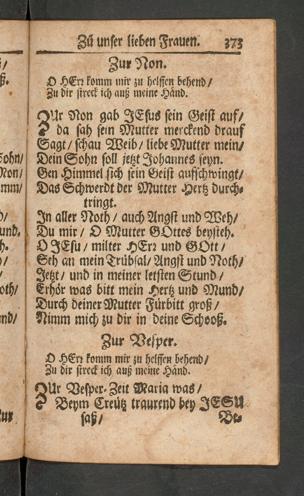 Zů unser lieben Frauen. 373
Zur Non.
O HErr komm mir zu helffen behend/
Zu dir streck ich auß meine Händ.
ZUr Non gab JEsus sein Geist auf/
da sah sein Mutter merckend drauf
Sagt/ schau Weib/ liebe Mutter mein/
Dein Sohn soll jetzt Johannes seyn.
Gen Himmel sich sein Geist aufschwingt/
Das Schwerdt der Mutter Hertz durch-
tringt.
In aller Noth/ auch Angst und Weh/
Du mir/ O Mutter GOttes beysteh.
O JEsu/ milter HErr und GOtt/
Seh an mein Trübsal/ Angst und Noth/
Jetzt/ und in meiner letsten Stund/
Erhör was bitt mein Hertz und Mund/
Durch deiner Mutter Fürbitt groß/
Nimm mich zu dir in deine Schooß.
Zur Vesper.
O HErr komm mir zu helffen behend/
Zu dir streck ich auß meine Händ.
ZUr Vesper-Zeit Maria was/
Beym Creütz traurend bey JESU
saß/ Be-